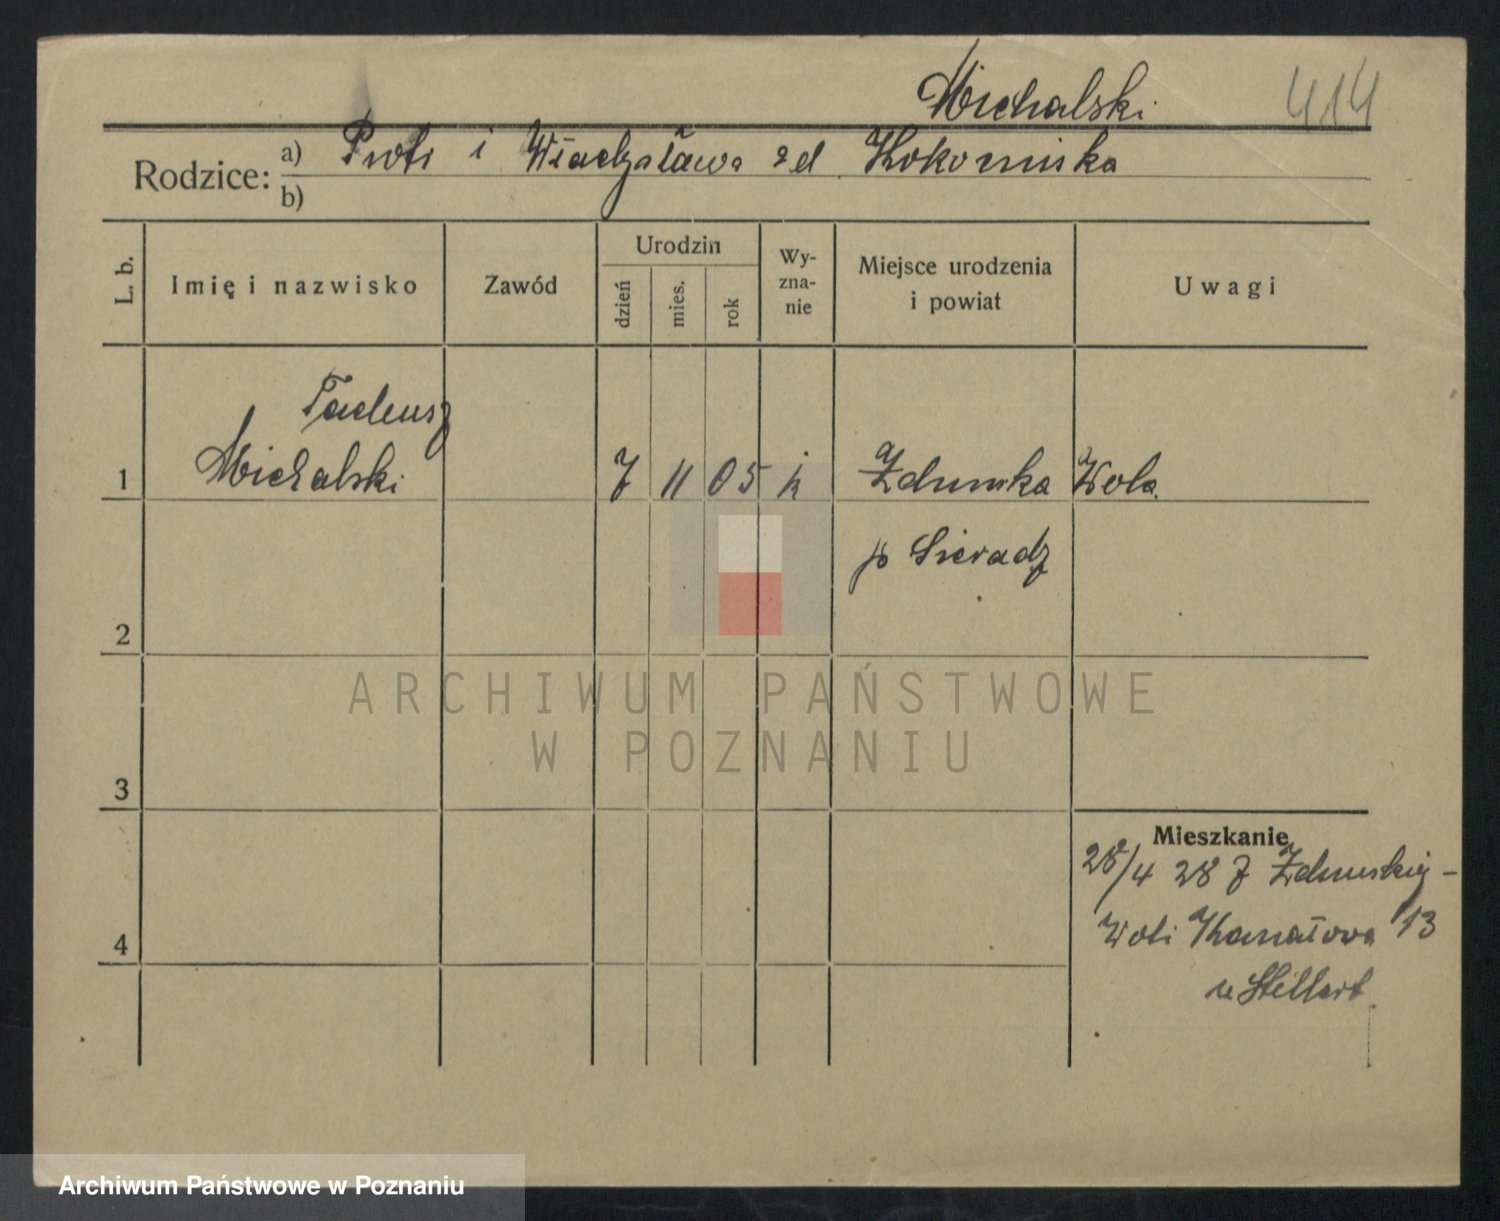 Michalski 414
Rodzice: a) Piotr i Władysława zd. Kokocińska
b)
L. b.
Imię i nazwisko
Zawód
Urodzin
dzień
mies.
rok
Wy-
zna-
nie
Miejsce urodzenia
i powiat
Uwagi
Tadeusz
1 Michalski 7 11 05 k Zduńska Wola
p Sieradz
2
ARCHIWUM PAŃSTWOWE
W POZNANIU
3
Mieszkanie
28/4 28 z Zduńskiej-
4 Woli Kanałowa 13
u Stellert
Archiwum Państwowe w Poznaniu